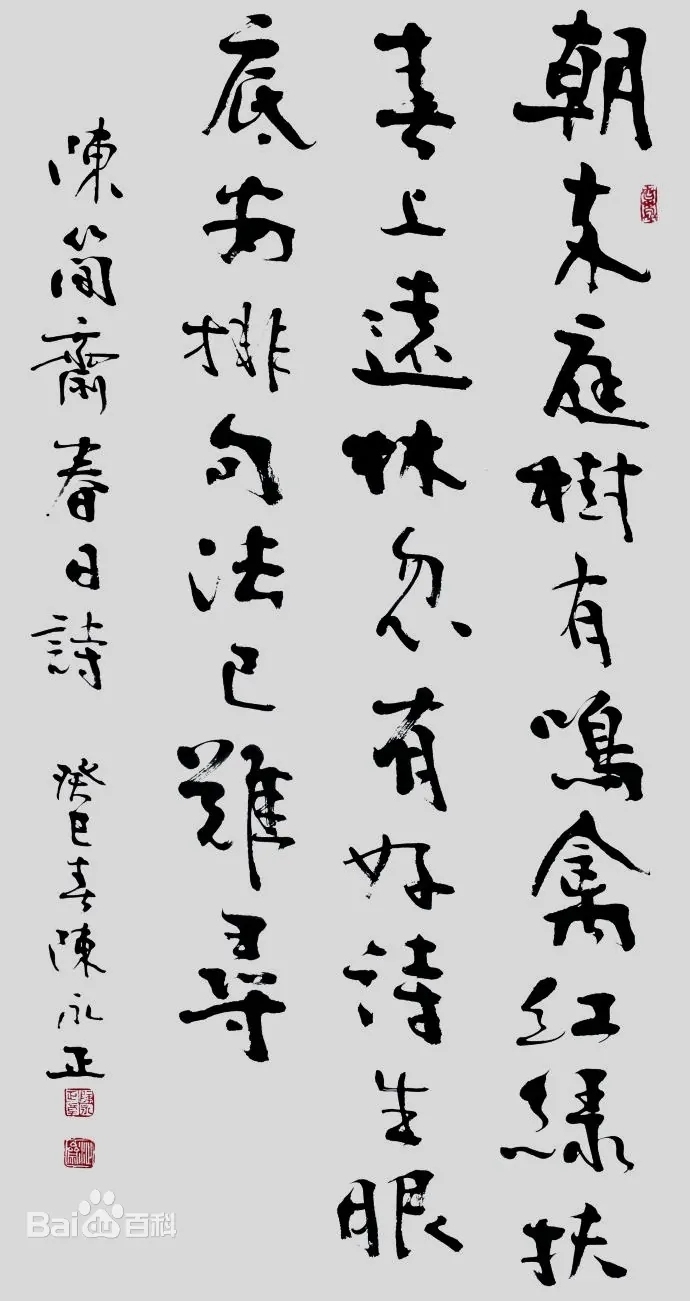 朝来庭樹有鳴禽紅緑扶
春上遠林忽有好詩生眼
底安排句法已難尋
陳簡齋春日詩 癸巳春陳永正
Bai百科